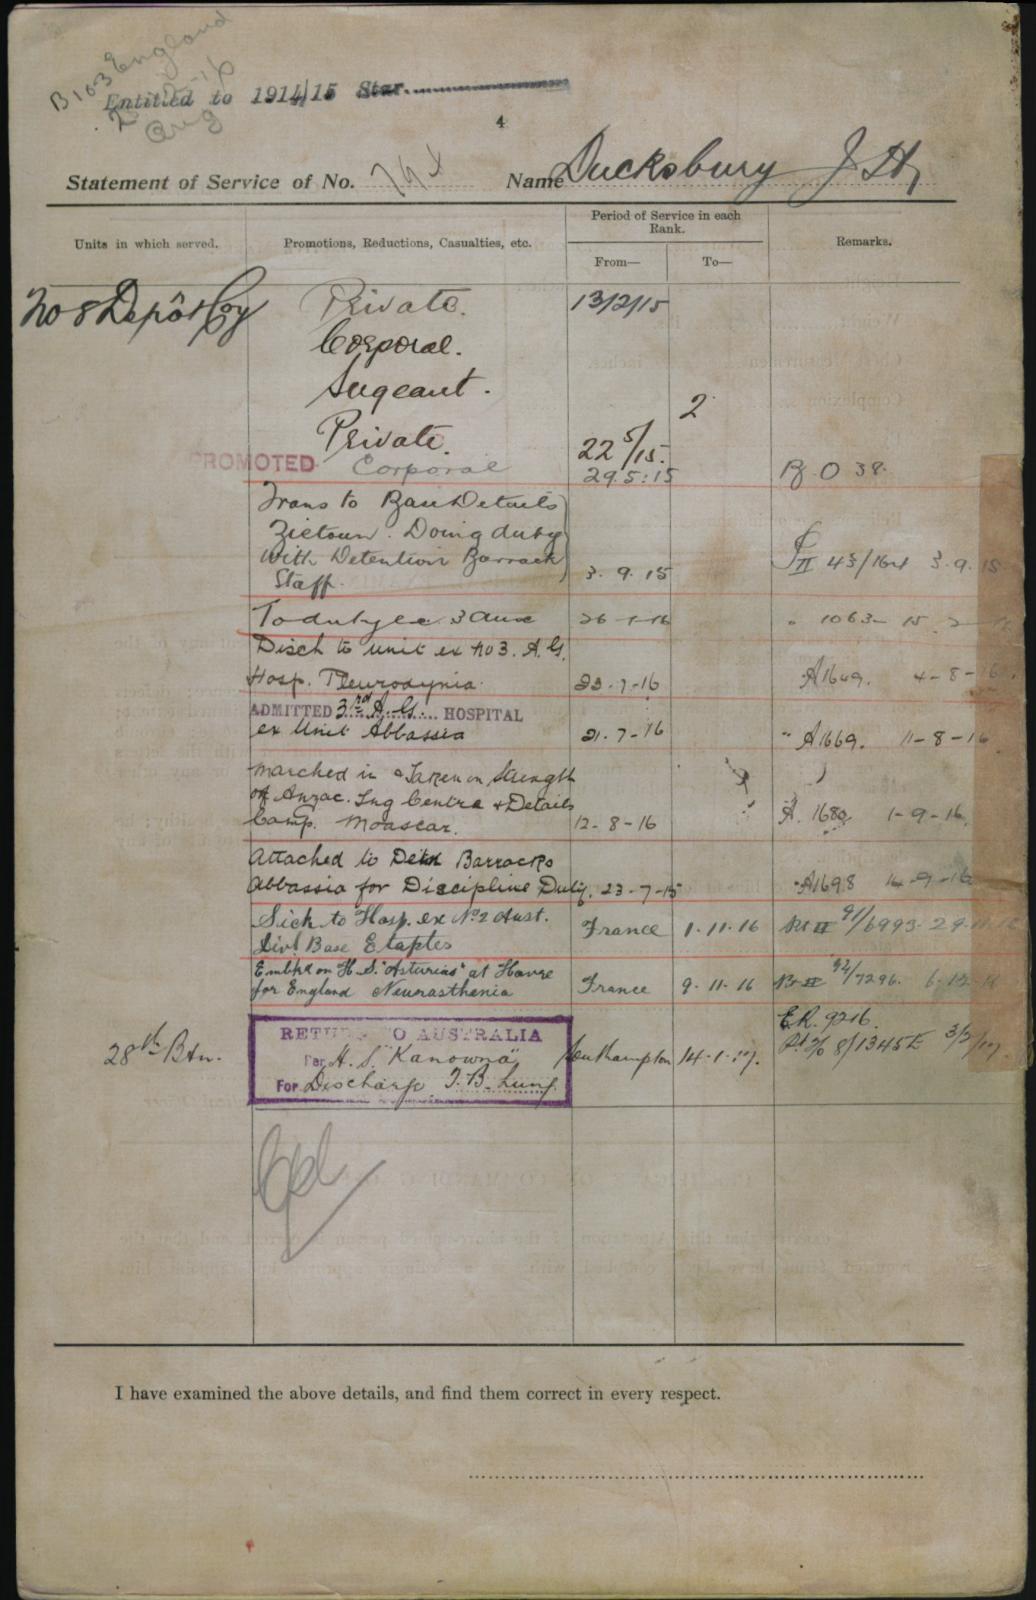 B103 England
Aug
Entitled to 1914/15 Star.
4
Statement of Service of No. Name Ducksbury J H
Units in which served. Promotions, Reductions, Casualties, etc. Period of Service in each Rank. Remarks.
From— To—
No 8 Depôt Coy Private. 13/2/15
Corporal.
Sergeant.
2
Private. 22/5/15.
PROMOTED Corporal 29.5.15 R.O 38.
Trans to Base Details
Zietoun. Doing duty
with Detention Barrack
Staff. 3.9.15 II 43/164 3.9.15
To duty ex 3 Aux 26-1-16 " 1063- 15
Disch to unit ex No 3. A.G.
Hosp. Pleurodynia. 23-7-16 A1649. 4-8-16.
ADMITTED 3rd A.G. HOSPITAL
ex Unit Abbassia 21-7-16 " A1669. 11-8-16
Marched in & Taken on Strength
of Anzac. Tng Centre & Details
Camp. Moascar. 12-8-16 A. 1680 1-9-16.
Attached to Detn Barracks
Abbassia for Discipline Duty. 23-7-15 "A1698 14-9-16
Sick to Hosp. ex No 2 Aust.
Divl Base Etaples France 1.11.16 Pt II 91/6993. 29.11.16
Embkd on H.S. "Asturias" at Havre
for England Neurasthenia France 9.11.16 Pt II 92/7296. 6.12.16
28th Btn. RETURN TO AUSTRALIA
Per H.S. "Kanowna" Southampton 14.1.17. E.R. 9216.
For Discharge T.B. Lung. 8/1345E 3/3/17.
I have examined the above details, and find them correct in every respect.